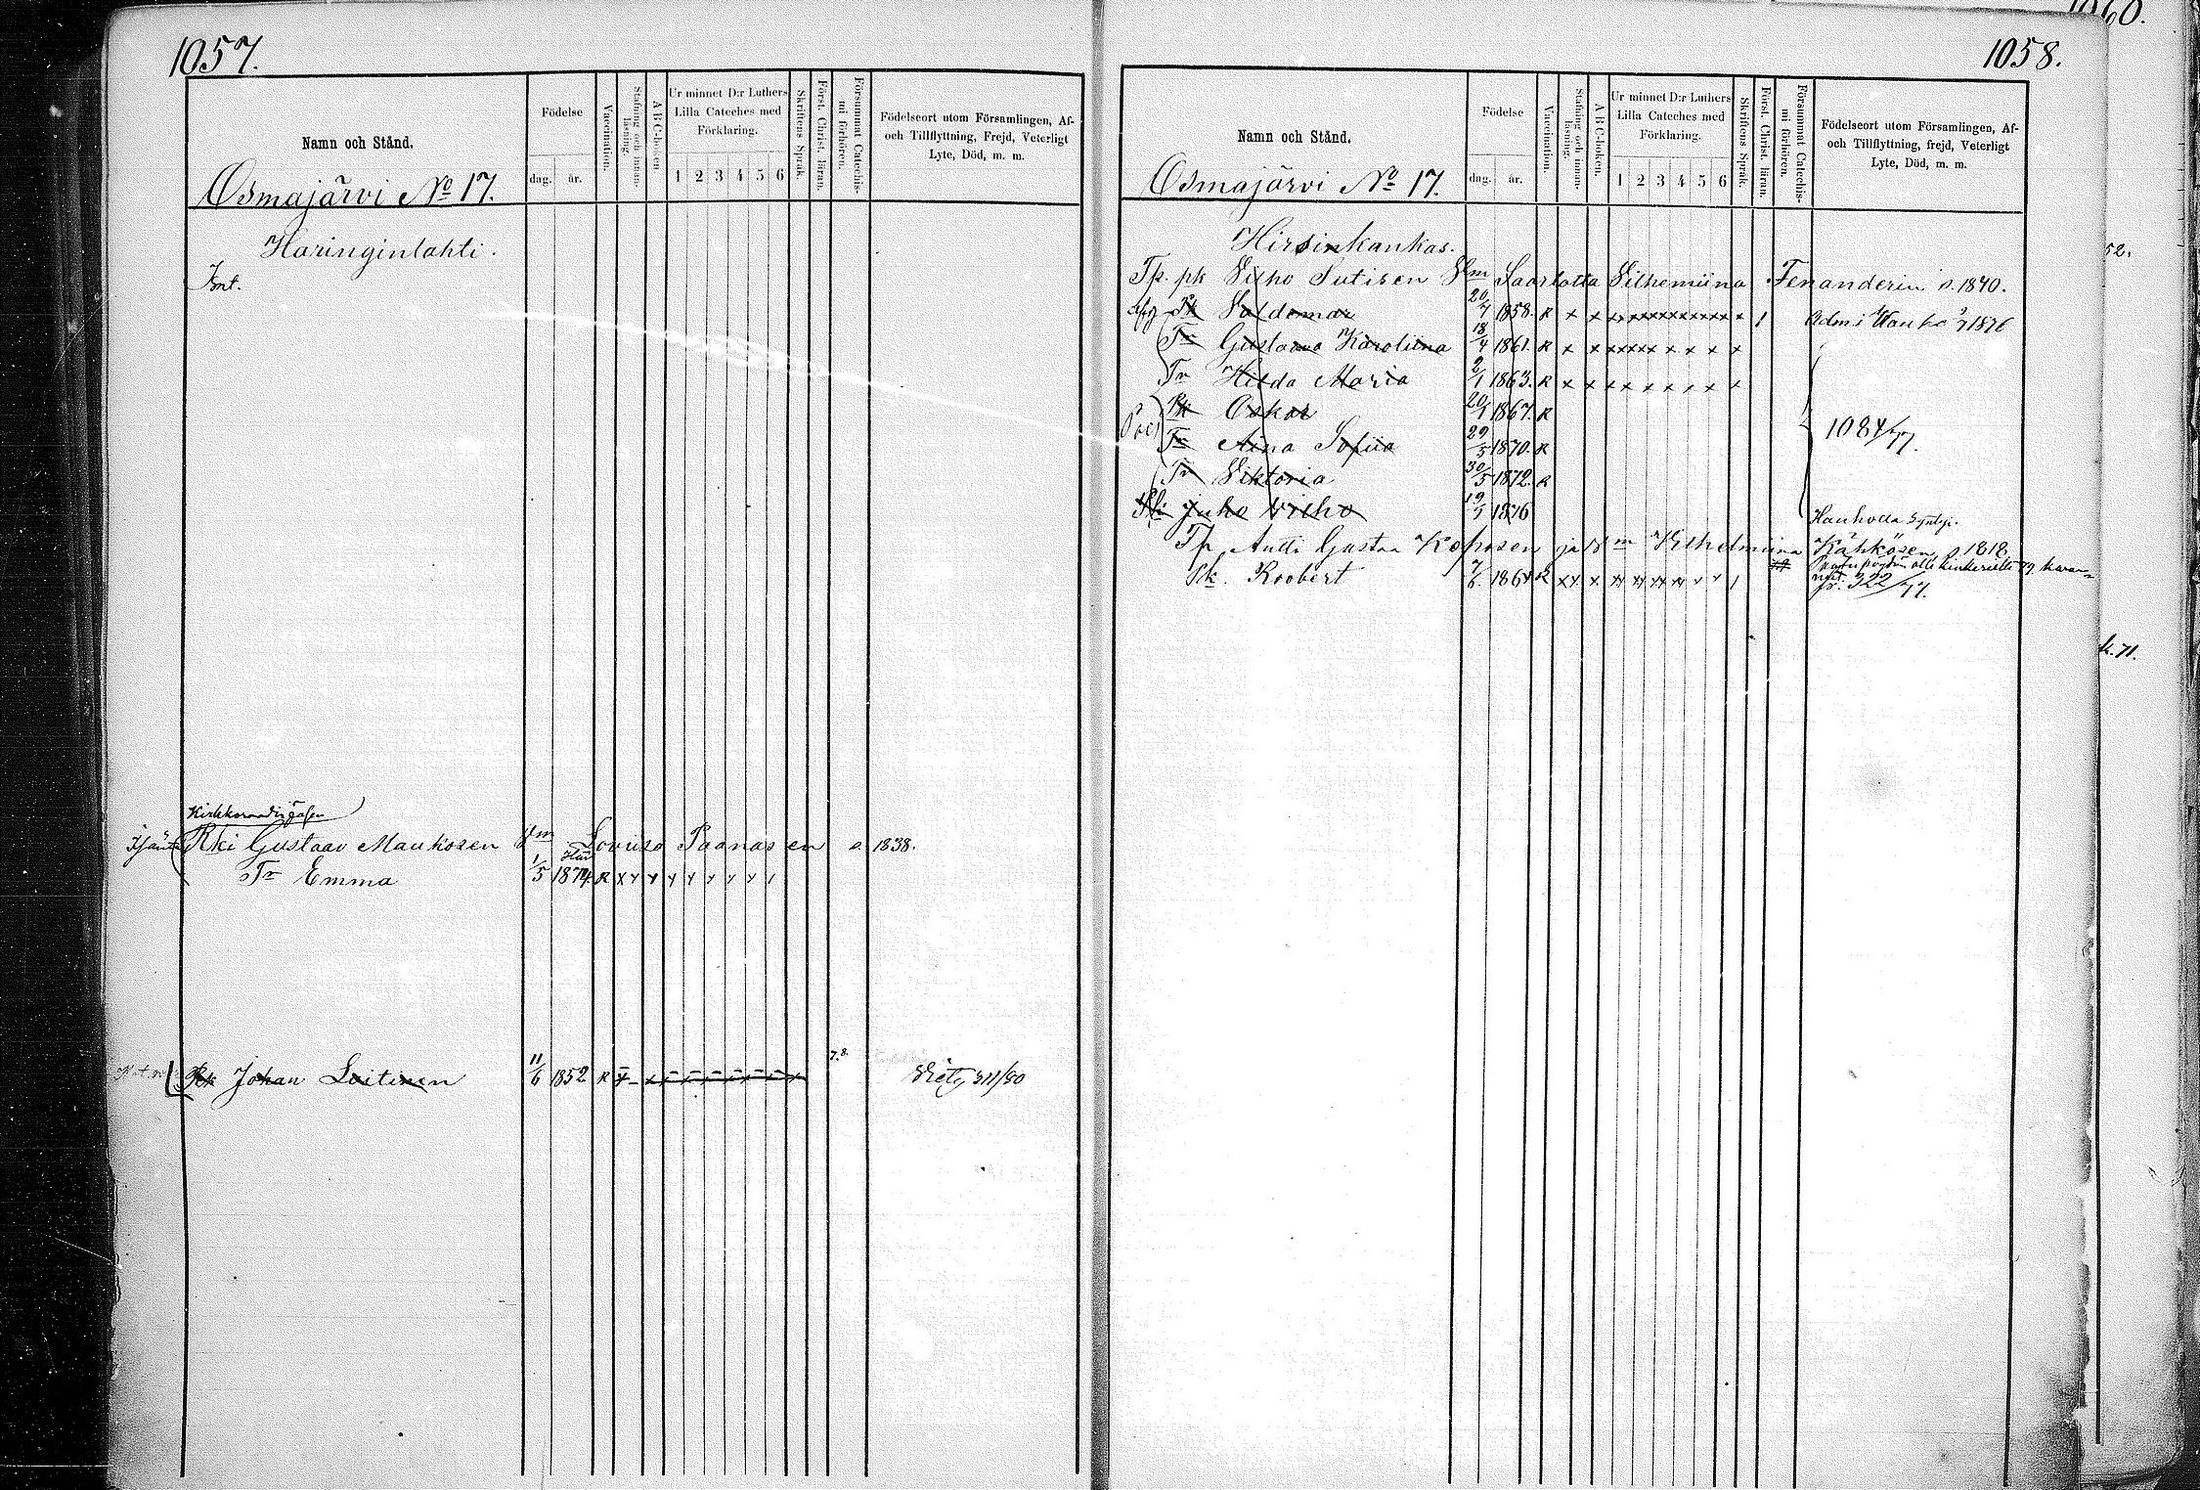 1057.
Namn och Stånd.
Födelse
dag. år.
Vaccination.
Stafning och innan-
läsning.
A B C-boken
Ur minnet D:r Luthers
Lilla Cateches med
Förklaring.
1 2 3 4 5 6
Skriftens Språk.
Först. Christ. läran.
Försummat Catechis-
mi förhören.
Födelseort utom Församlingen, Af-
och Tillflyttning, Frejd, Veterligt
Lyte, Död, m. m.
Osmajärvi No 17.
Haringinlahti.
Rki Gustaav Maukosen Lovisa Paanasen s. 1838.
Tr Emma 1/5 1874. R
Rk Johan Loitinen 11/6 1852 R 7.8.
1060.
1058.
Namn och Stånd.
Födelse
dag. år.
Vaccination.
Stafning och innan-
läsning.
A B C-boken.
Ur minnet D:r Luthers
Lilla Cateches med
Förklaring.
1 2 3 4 5 6
Skriftens Språk.
Först. Christ. läran.
Försummat Catechis-
mi förhören.
Födelseort utom Församlingen, Af-
och Tillflyttning, frejd, Veterligt
Lyte, Död, m. m.
Osmajärvi No 17.
Hirsinkankas.
Tp. pk Vilho Sutisen Saarlotta Vilhemiina Fenanderin s. 1840.
Pk Valdemar 20/7 1858. R
Tr Gustaava Karoliina 18/4 1861. R
Tr Hilda Maria 2/1 1863. R
Pk Oskar 20/1 1867. R
1084/77.
Tr Aina Sofiia 29/5 1870. R
Tr Viktoria 30/5 1872. R
Juho Vilho 1876
Tp. Antti Gustaa Koposen ja Vilhelmiina Kähkösen s. 1818
Pk. Roobert 7/6 1864 R
322/71.
52.
k. 71.